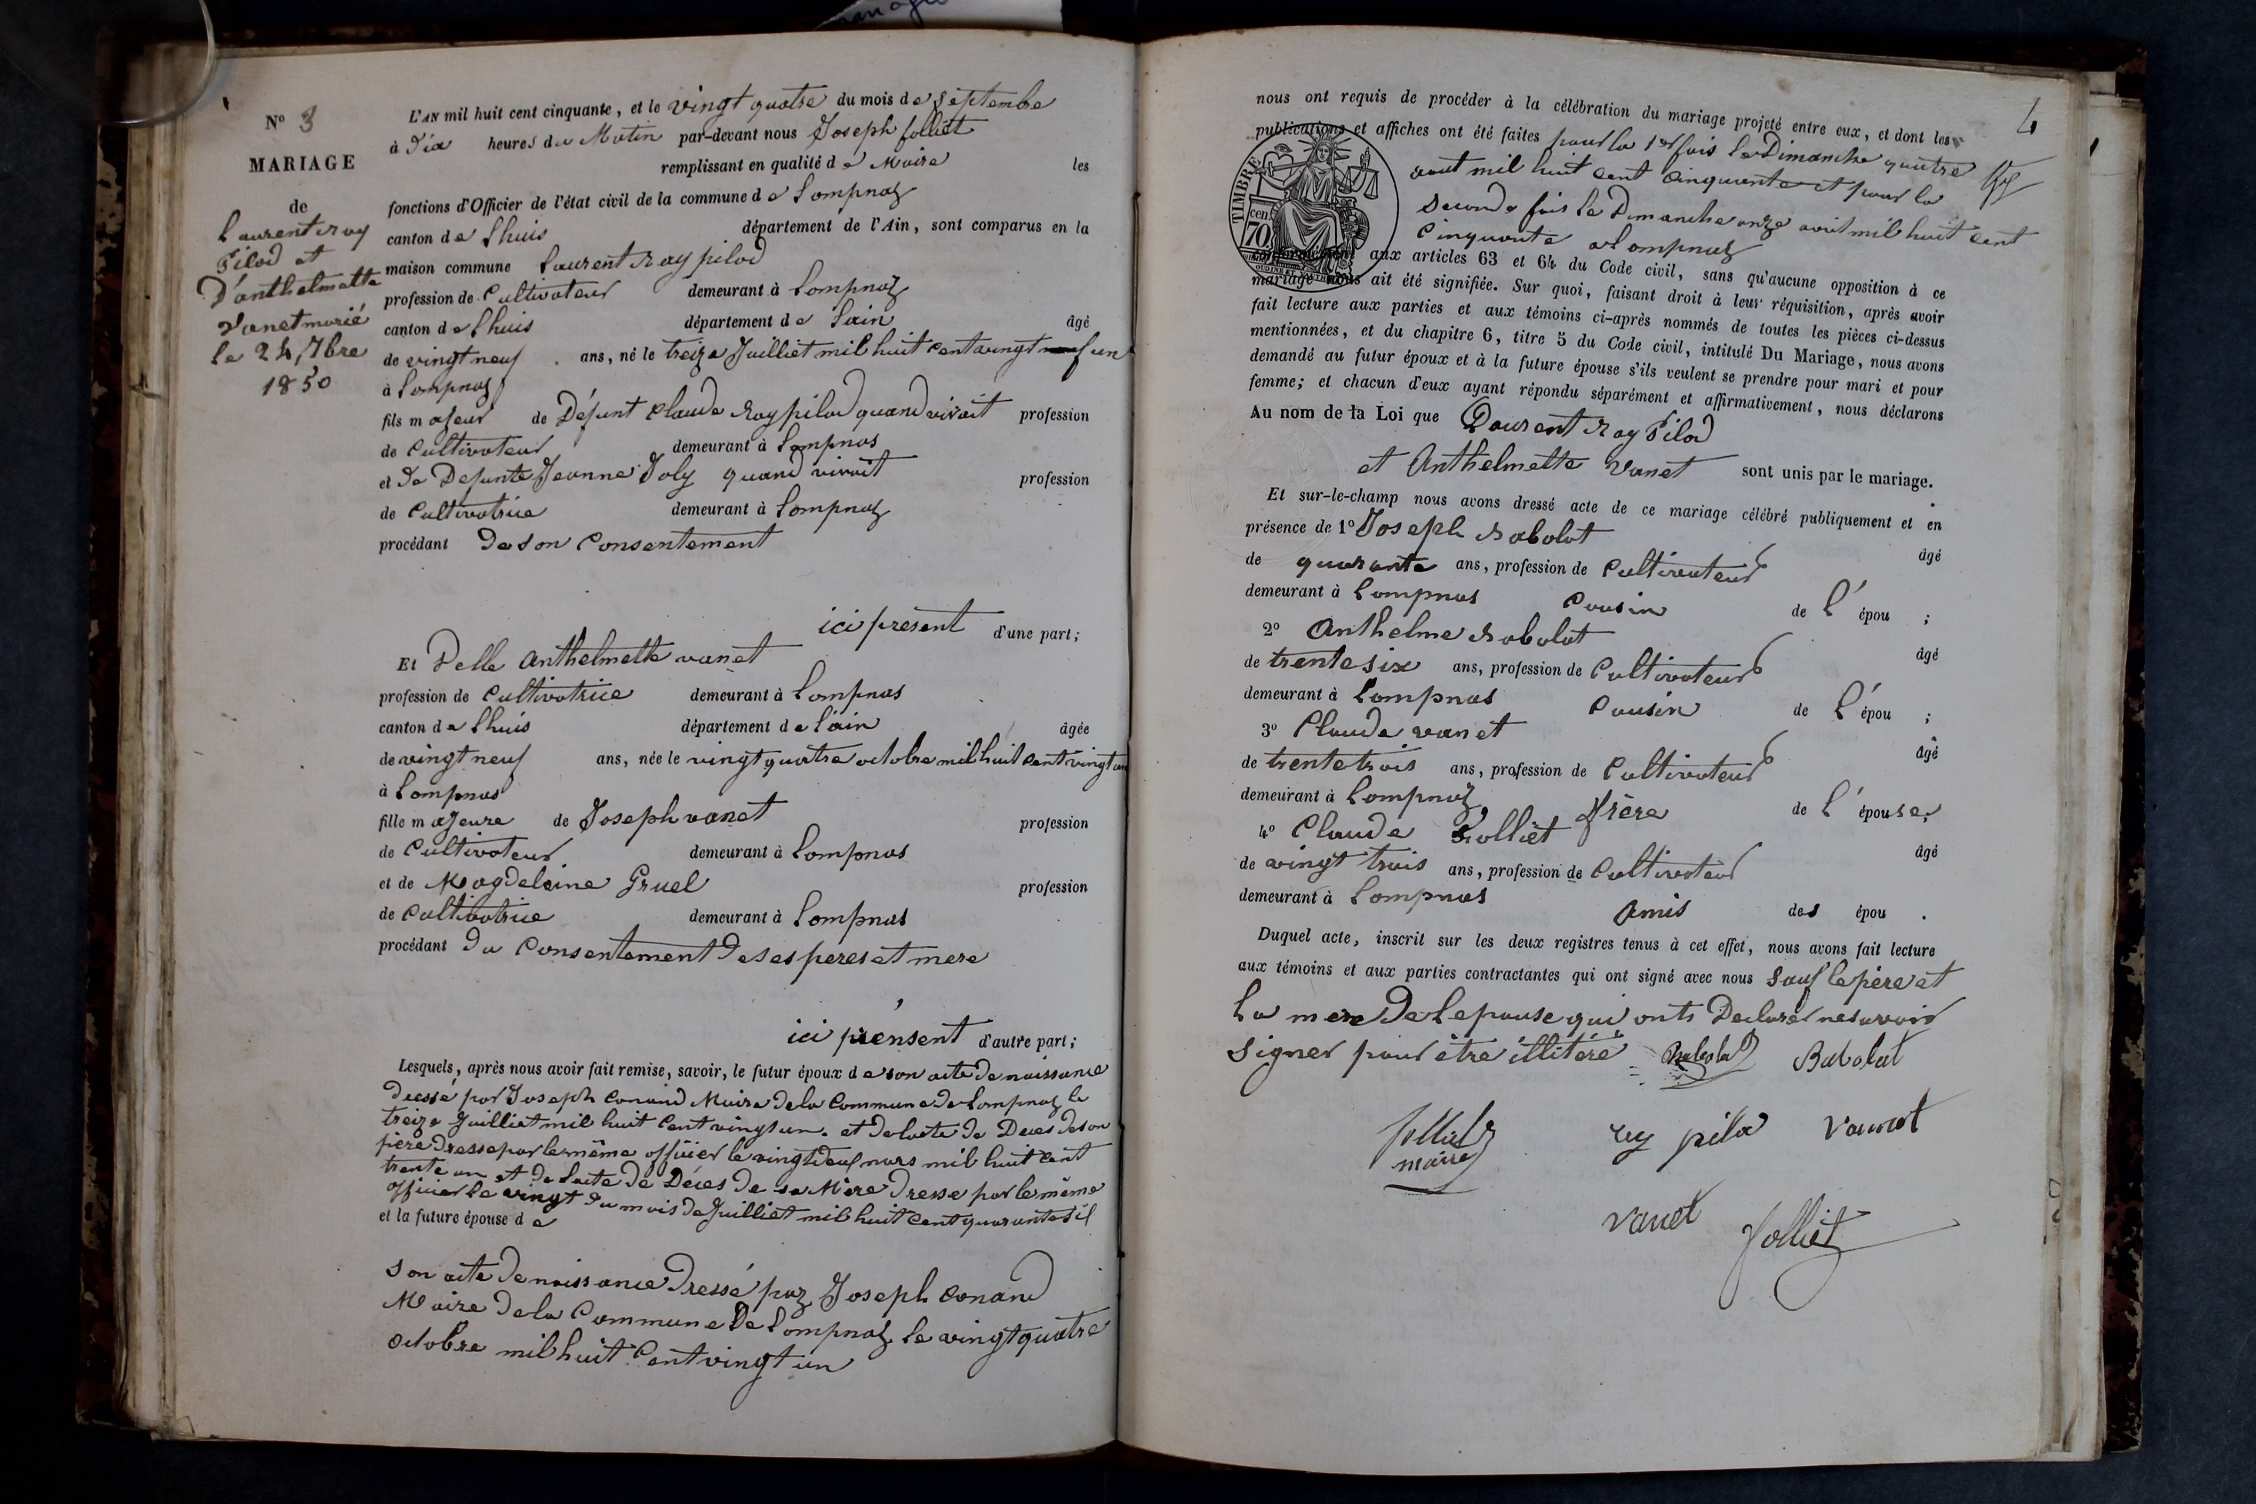 Nº 3
MARIAGE
de
Laurent roy
Pilod et
D'anthelmette
Vanet marié
le 24 7bre
1850
L'AN mil huit cent cinquante, et le vingt quatre du mois de septembre
à dix heures du Matin par-devant nous Joseph folliet
remplissant en qualité de Maire les
fonctions d'Officier de l'état civil de la commune de Lompnaz
canton de Lhuis département de l'Ain, sont comparus en la
maison commune Laurent Roy pilod
profession de Cultivateur demeurant à Lompnaz
canton de Lhuis département de Lain âgé
de vingt neuf ans, né le treize Juilliet mil huit cent vingt neuf un
à Lompnaz
fils majeur de Défunt Claude Roy pilod quand vivait profession
de Cultivateur demeurant à Lompnas
et de Defunte Jeanne Joly quand vivait profession
de Cultivatrice demeurant à Lompnaz
procédant de son Consentement
ici présent d'une part;
Et Delle Anthelmette vanet
profession de Cultivatrice demeurant à Lompnas
canton de Lhuis département de Lain âgée
de vingt neuf ans, née le vingt quatre octobre mil huit cent vingt un
à Lompnas
fille majeure de Joseph vanet profession
de Cultivateur demeurant à Lompnas
et de Magdeleine Gruel profession
de Cultivatrice demeurant à Lompnas
procédant du Consentement de ses peres et mere
ici présent d'autre part;
Lesquels, après nous avoir fait remise, savoir, le futur époux de son acte de naissance
dressé par Joseph Conand Maire de la Commune de Lompnaz le
treize Juilliet mil huit Cent vingt un. et de lacte de Déces de son
père dresse par le même officier le vingt deux mars mil huit cent
trente un et de lacte de Déces de sa Mère dresse par le même
officier le vingt du mois de Juilliet mil huit cent quarante
et la future épouse de
son acte de naissance dressé par Joseph Conand
Maire de la Commune De Lompnaz le vingt quatre
octobre mil huit Cent vingt un
4
nous ont requis de procéder à la célébration du mariage projeté entre eux, et dont les
publications et affiches ont été faites pour la 1er fois le Dimanche quatre
aout mil huit cent Cinquante et pour la
seconde fois le Dimanche onze aout mil huit cent
Cinquante a Lompnaz
TIMBRE
cen.
70
conformément aux articles 63 et 64 du Code civil, sans qu'aucune opposition à ce
mariage nous ait été signifiée. Sur quoi, faisant droit à leur réquisition, après avoir
fait lecture aux parties et aux témoins ci-après nommés de toutes les pièces ci-dessus
mentionnées, et du chapitre 6, titre 5 du Code civil, intitulé Du Mariage, nous avons
demandé au futur époux et à la future épouse s'ils veulent se prendre pour mari et pour
femme; et chacun d'eux ayant répondu séparément et affirmativement, nous déclarons
Au nom de la Loi que Laurent Roy Pilod
et Anthelmette Vanet sont unis par le mariage.
Et sur-le-champ nous avons dressé acte de ce mariage célébré publiquement et en
présence de 1º Joseph Rabolat âgé
de quarante ans, profession de Cultivateur
demeurant à Lompnas Cousin de l' épou ;
2º Anthelme Rabolat âgé
de trente six ans, profession de Cultivateur
demeurant à Lompnas Cousin de l' épou ;
3º Claude vanet âgé
de trente trois ans, profession de Cultivateur
demeurant à Lompnaz frère de l' épouse;
4º Claude Folliet âgé
de vingt trois ans, profession de Cultivateur
demeurant à Lompnas Amis des épou .
Duquel acte, inscrit sur les deux registres tenus à cet effet, nous avons fait lecture
aux témoins et aux parties contractantes qui ont signé avec nous Sauf le père et
La mere De Lepouse qui onts Declaré ne savoir
signer pour être illitéré
Rabolat Babolat
folliet roy pilod Vannet
maire
vanet folliet